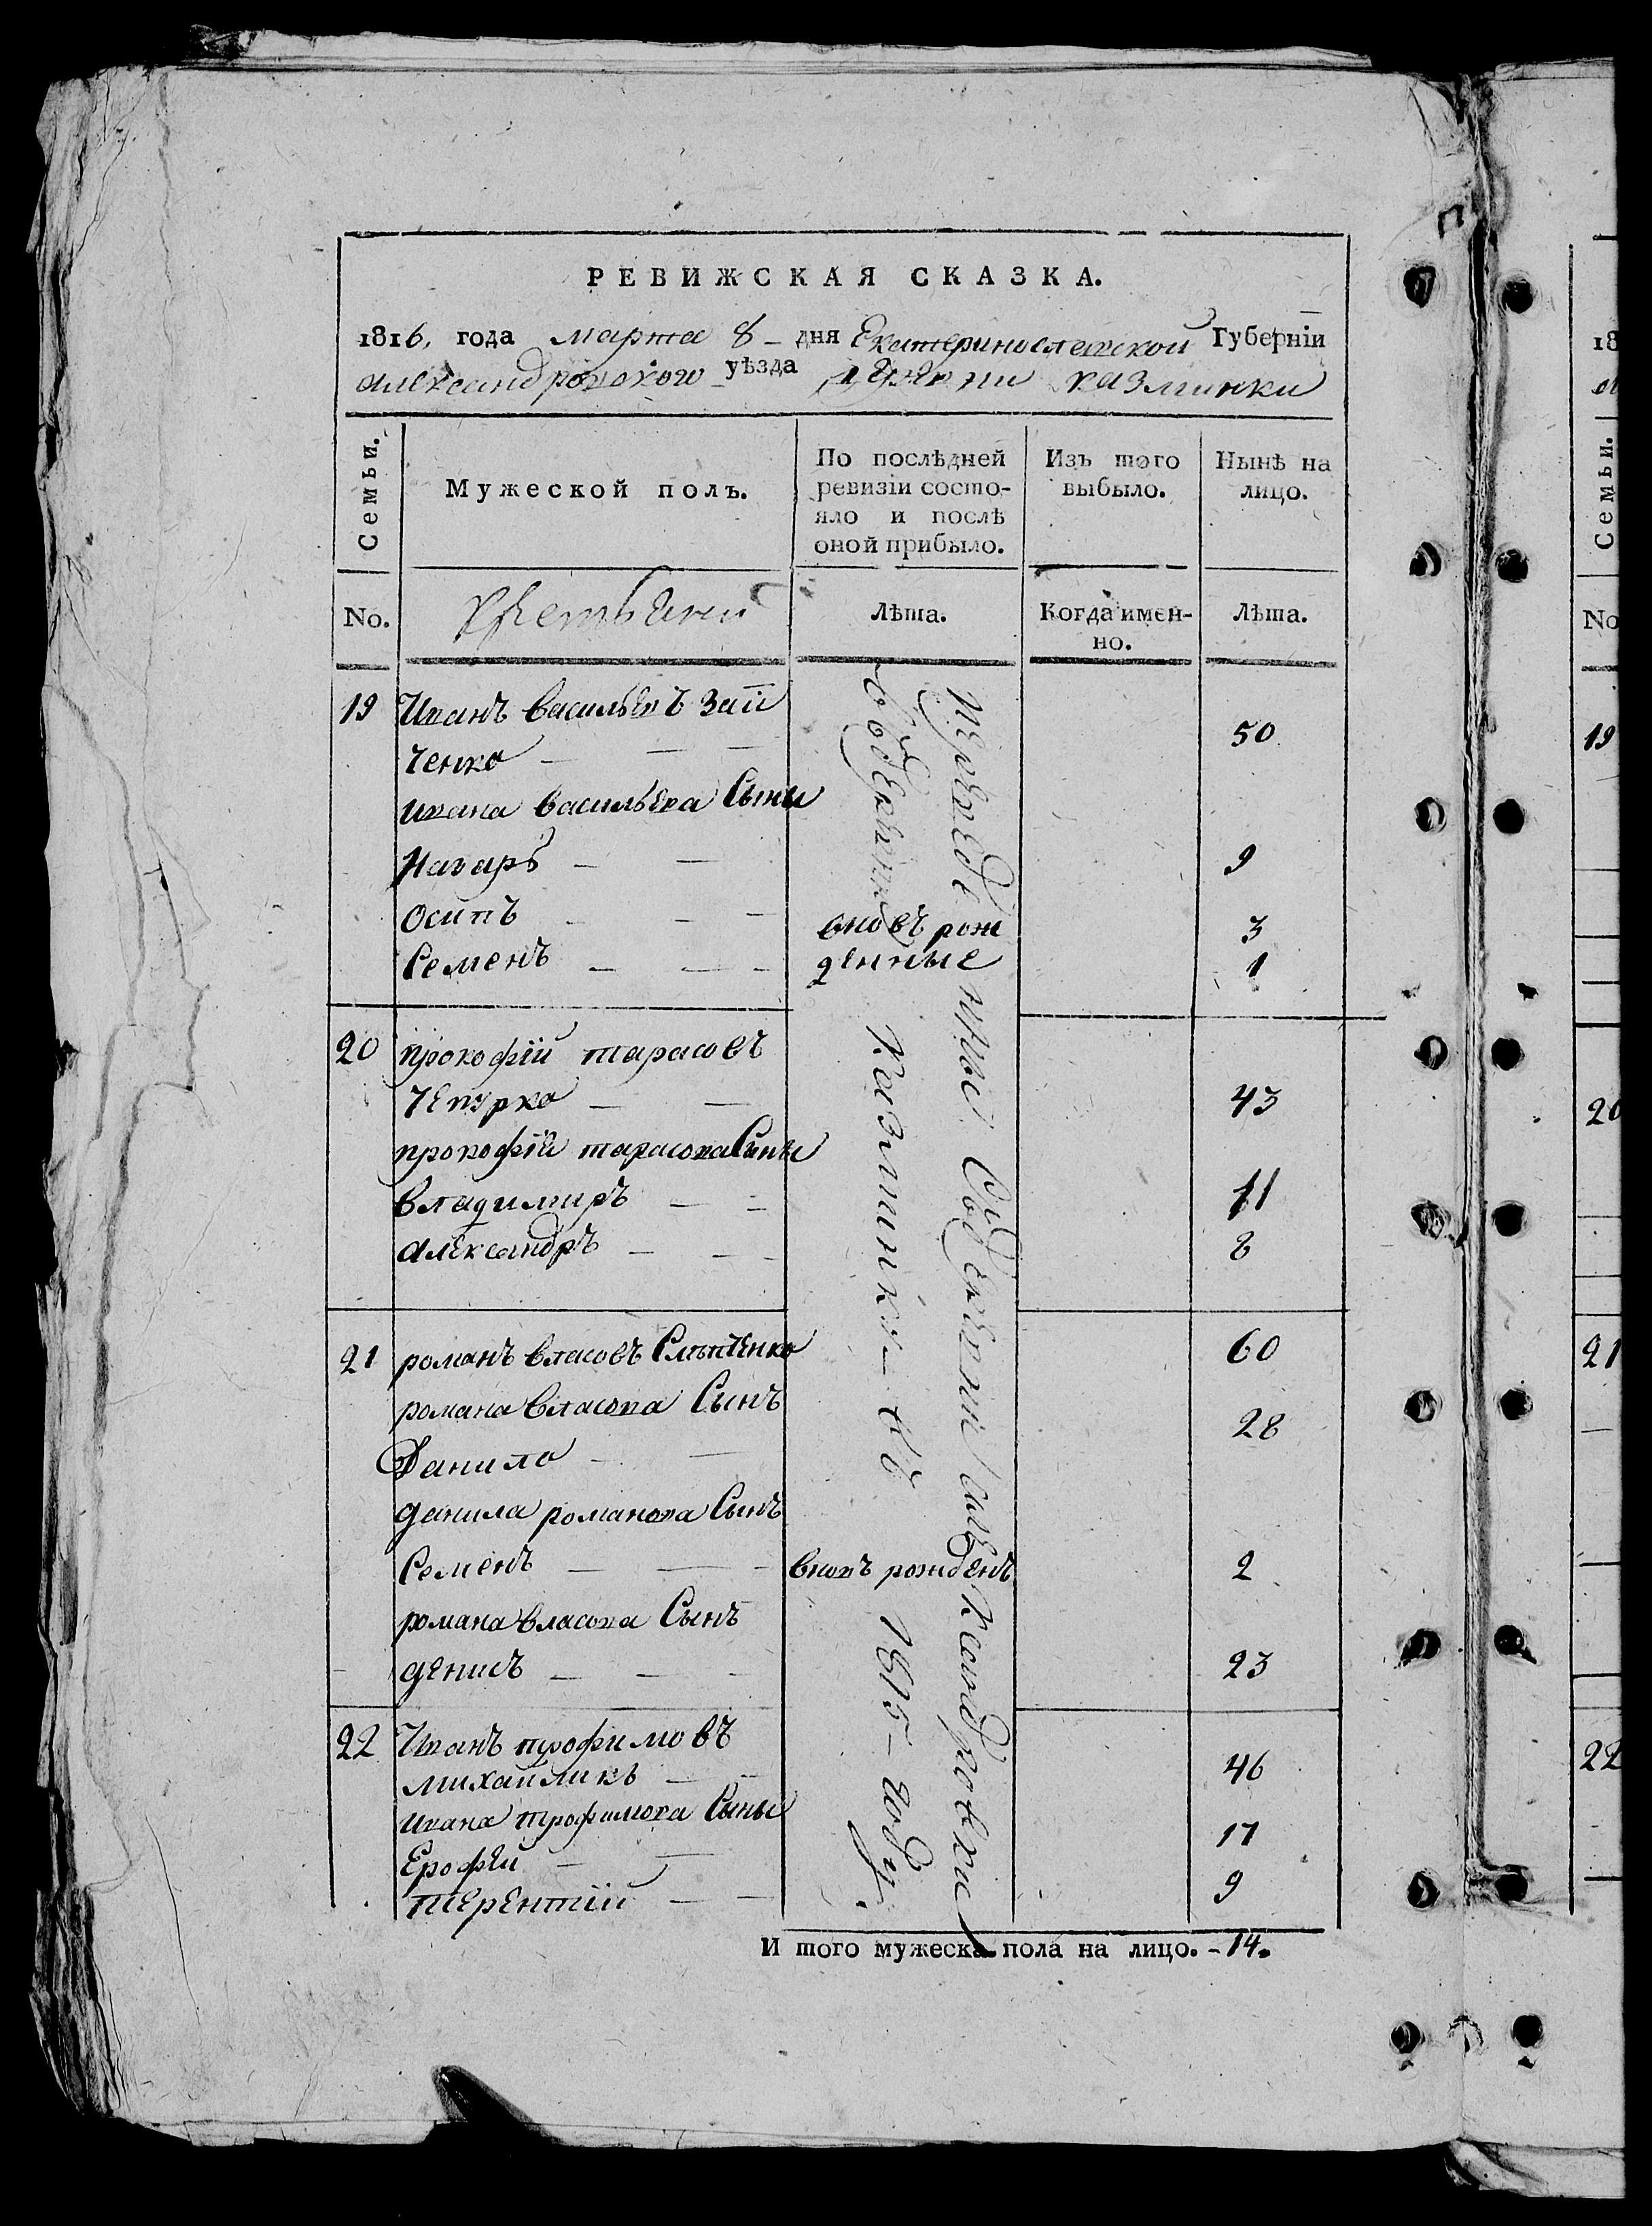 РЕВИЖСКАЯ СКАЗКА.
1816, года марта 8 – дня Екатеринославской Губерніи
александровского уѣзда деревни казминки
Семьи.
Мужеской полъ.
По послѣдней ревизіи состо-
яло и послѣ
оной прибыло.
Изъ того
выбыло.
Нынѣ на
лицо.
No.
Лѣта.
Когда имен-
но.
Лѣта.
19 Иванъ васильевъ Зай
ченко – – – 50
ивана васильева Сыны
Назаръ – – 9
Осипъ – – – вновъ рож 3
Семенъ – – – денные 1
20 прокофій тарасовъ
Чепурка – – 43
прокофія тарасова Сыны
владимиръ – – 11
александръ – – – 8
21 романъ власовъ 60
романа власова Сынъ
Данило – – 28
данила романова Сынъ
Семенъ – – – вновъ рожденъ 2
романа власова Сынъ
денисъ – – – 23
22 Иванъ трофимовъ
михайликъ – – 46
ивана трофимова Сыны
Ерофей – – 17
терентій – – 9
казминки – въ 1815 – году.
И того мужеска пола на лицо. – 14.
18
Семьи.
No
19
20
21
22